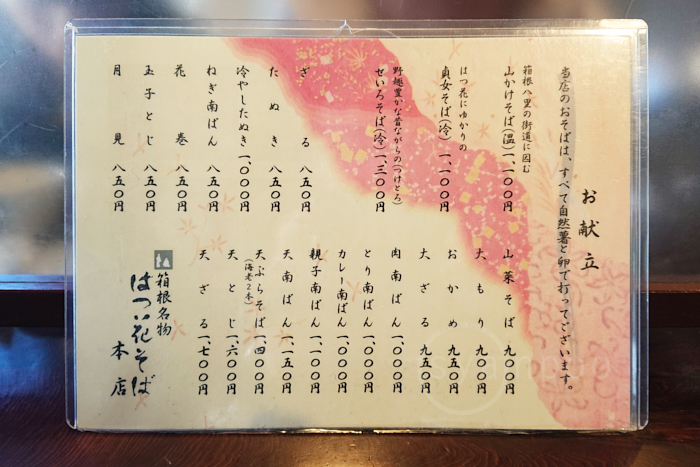 お献立
当店のおそばは、すべて自然薯と卵で打ってございます。
箱根八里の街道に因む
山かけそば(温)一、一〇〇円
はつ花にゆかりの
貞女そば(冷)一、一〇〇円
野趣豊かな昔ながらの(つけとろ)
せいろそば(冷)一、三〇〇円
ざる 八五〇円
たぬき 八五〇円
冷やしたぬき 一、〇〇〇円
ねぎ南ばん 八五〇円
花巻 八五〇円
玉子とじ 八五〇円
月見 八五〇円
山菜そば 九〇〇円
大もり 九〇〇円
おかめ 九五〇円
大ざる 九五〇円
肉南ばん 一、〇〇〇円
とり南ばん 一、〇〇〇円
カレー南ばん 一、〇〇〇円
親子南ばん 一、一〇〇円
天南ばん 一、一五〇円
天ぷらそば 一、四〇〇円
(海老2本)
天とじ 一、六〇〇円
天ざる 一、七〇〇円
箱根名物
はつ花そば
本店